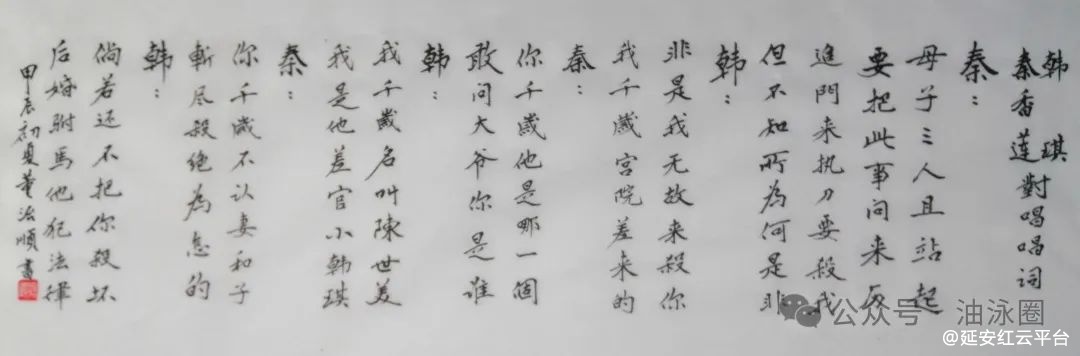 韩琪
秦香莲對唱唱词
秦：
母子三人且站起
要把此事问来历
進門来执刀要殺我
但不知所为何是非
韩：
非是我无故来殺你
我千歲宫院差来的
秦：
你千歲他是哪一個
敢问大爷你是谁
韩：
我千歲名叫陳世美
我是他差官小韩琪
秦：
你千歲不认妻和子
斬尽殺绝為怎的
韩：
倘若还不把你殺坏
后婚駙馬他犯法律
甲辰初夏董法順書
公众号·油泳圈
@延安红云平台